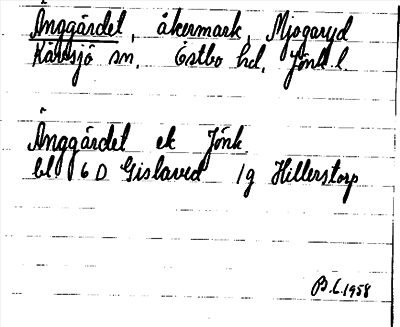 Änggärdet, åkermark, Mjogaryd
Kävsjö sn. Östbo hd. Jönk l.
Änggärdet ek Jönk.
bl 6 D Gislaved 1g Hillerstorp
B.L. 1958